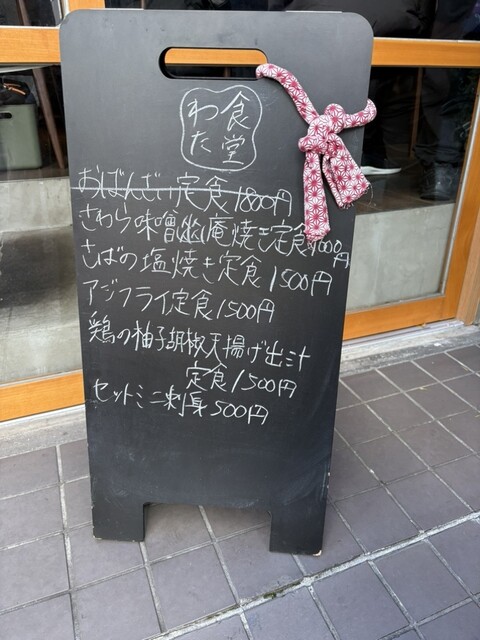 食堂
わた
おばんざい定食1800円
さわら味噌幽庵焼き定食 円
さばの塩焼き定食1500円
アジフライ定食1500円
鶏の柚子胡椒天揚げ出汁
定食1500円
セットミニ刺身500円